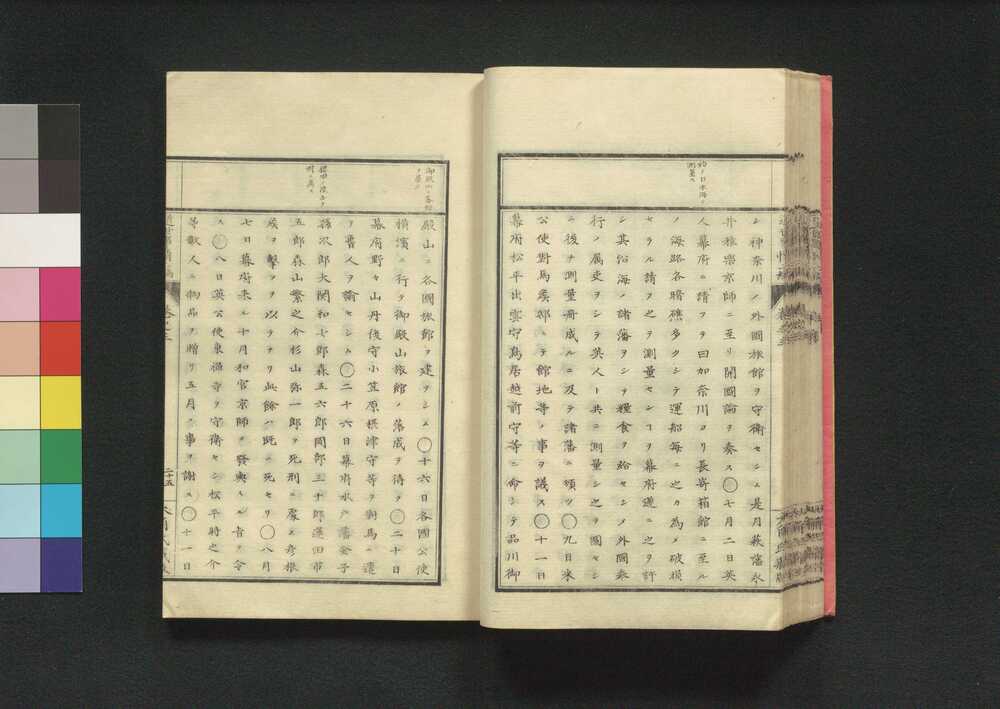 始メ日本海ヲ
測量ス
シ神奈川ノ外國旅館ヲ守衛セシム是月萩藩永
井雅樂京師ニ至リ開國論ヲ奏ス〇七月二日英
人幕府ニ請フテ曰加奈川ヨリ長崎箱館ニ至ル
ノ海路各暗礁多クシテ運船毎ニ之カ為メ破損
セラル請フ之ヲ測量セン丨ヲ幕府遂ニ之ヲ許
シ其沿海ノ諸藩ヲシテ糧食ヲ給セシメ外國奉
行ノ属吏ヲシテ英人ト共ニ測量シ之ヲ圖セシ
ム後チ測量畵成ルニ及テ諸藩ニ頒ツ〇九日米
公使對馬矦邸ニテ館地等ノ事ヲ議ス〇十一日
幕府松平出雲守鳥居越前守等ニ命シテ品川御
殿山ニ各國旅館ヲ建ヲシム〇十六日各國公使
横濱ニ行ク御殿山旅館ノ落成ヲ待ツ〇二十日
幕府野々山丹後守小笠原摂津守等ヲ對馬ニ遣
リ書人ヲ諭セシム〇二十六日幕府水戸藩金子
孫次郎大関和七郎森五六郎岡部三十郎蓮田市
五郎森山繁之介杉山弥一郎ヲ死刑ニ處ス彦根
矦ヲ撃ツヲ以テナリ此餘ハ既ニ死セリ〇八月
七日幕府來ル十月和宮京師ヲ發輿ノ旨ヲ令
ス〇八日英公使東禅寺ヲ守衛セシ松平時之介
等數人ニ物品ヲ贈リ五月ノ事ヲ謝ス〇十一日
二十五